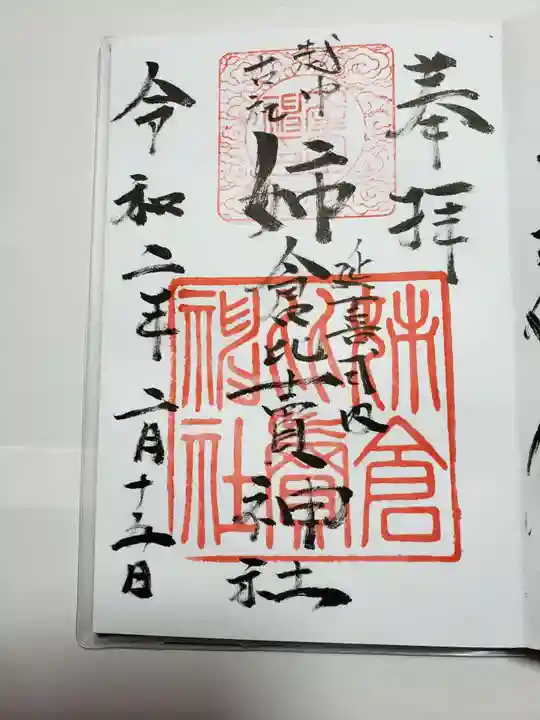 奉拝
延喜式内
越中
古社
姉倉比賣神社
令和二年二月十五日
姉倉比賣神社